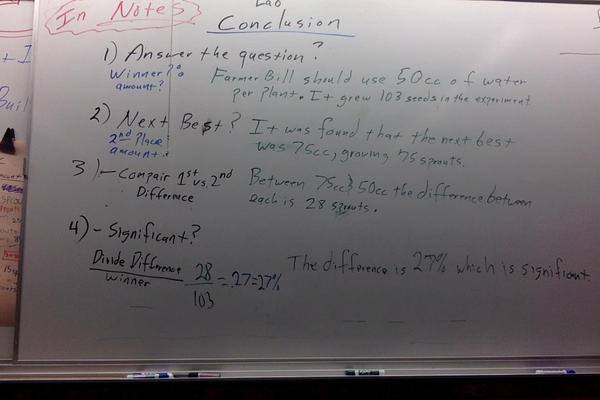 In Notes
Lab
Conclusion
1) Answer the question?
Winner?
amount?
Farmer Bill should use 50cc of water
per plant. It grew 103 seeds in the experiment
2) Next Best?
2nd Place
amount.
It was found that the next best
was 75cc, growing 75 sprouts.
3) - Compair 1st vs. 2nd
Difference
Between 75cc & 50cc the difference between
each is 28 sprouts.
4) - Significant?
Divide Difference
Winner
28
103
= .27 = 27%
The difference is 27% which is significant.